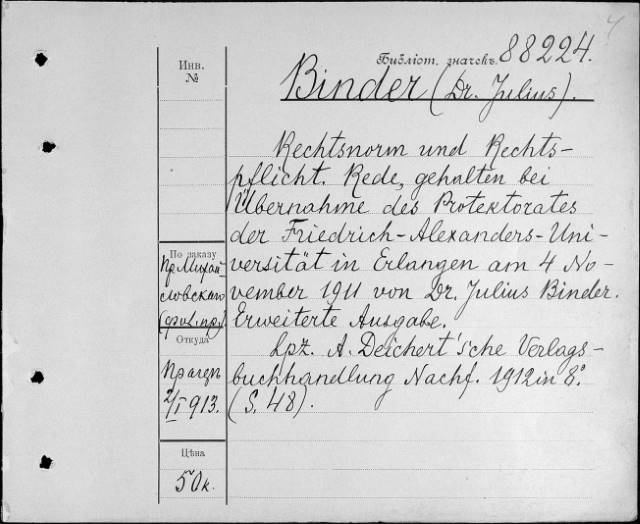 Библіот. значекъ. 88224.
Binder (Dr. Julius).
Rechtsnorm und Rechts-
pflicht. Rede, gehalten bei
Übernahme des Protektorates
der Friedrich-Alexanders-Uni-
versität in Erlangen am 4 No-
vember 1911 von Dr. Julius Binder.
Erweiterte Ausgabe.
Lpz. A. Deichert'sche Verlags-
buchhandlung Nachf. 1912 in 8º.
(S. 48).
Инв.
№
По заказу
Пр. Михай-
ловскаго
Откуда
Прагеръ
2/I 913.
Цѣна
50 к.